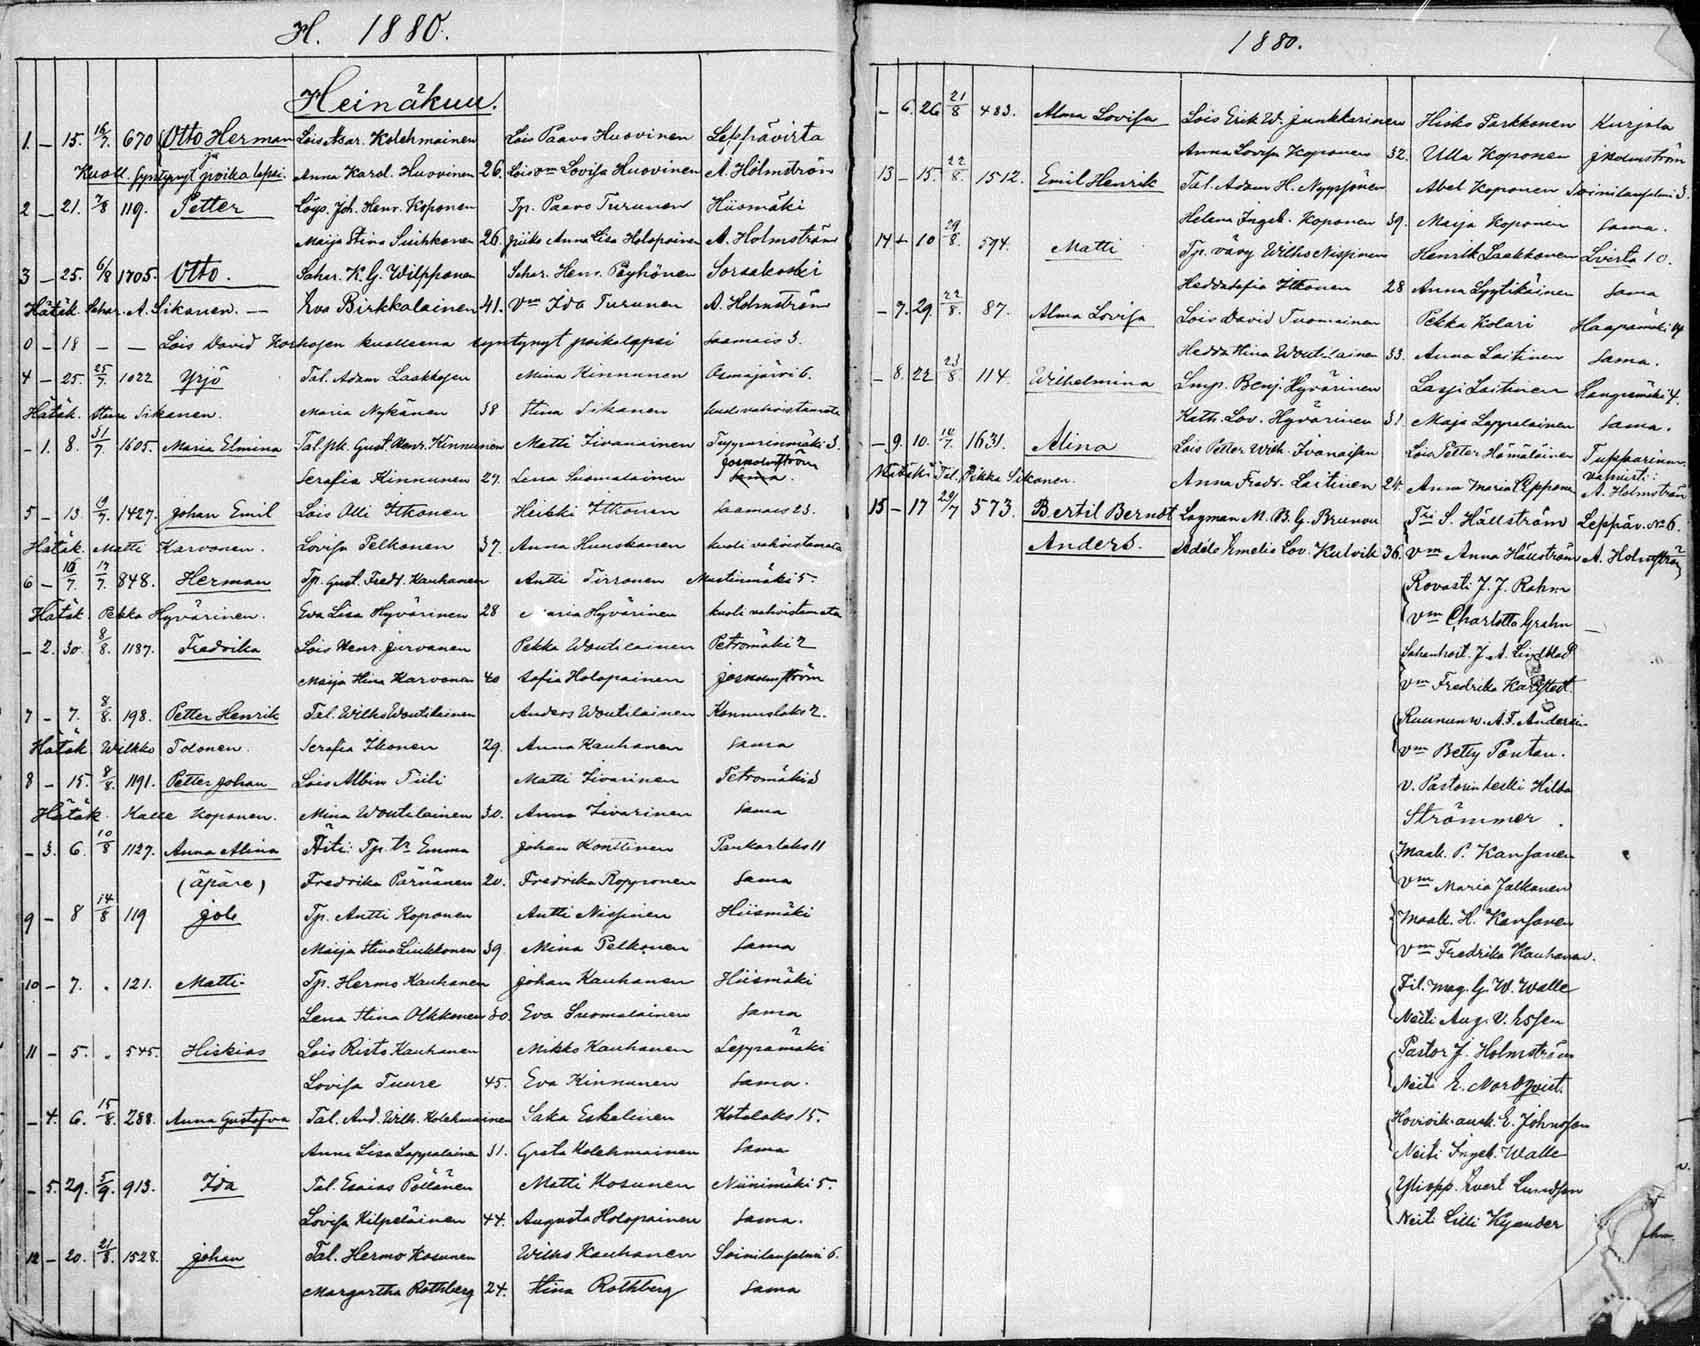 H. 1880.
Heinäkuu.
1. – 15. 16/7. 670 Otto Herman Lois Asar. Kolehmainen Lois Paavo Huovinen Leppävirta
ja
Kuoll. syntynyt poika lapsi. Anna Karol. Huovinen 26. Lois vm Lovisa Huovinen A. Holmström
2 – 21. 7/8 119. Petter Löys. Joh. Henr. Koponen Tp. Paavo Turunen Hiismäki
Maija Stina Suihkonen 26. piika Anna Lisa Holopainen A. Holmström
3 – 25. 6/8 1705. Otto. Sahar. K. G. Wilpponen Sahar. Henr. Pöyhönen Sorsakoski
Hätäk. Sahar. A. Sikanen. – Eva Birkkalainen 41. Vm Ida Turunen A. Holmström
0 – 18 – – Lois David Korhosen kuolleena syntynyt poikalapsi Saamais 3.
4 – 25. 25/7. 1022 Yrjö Tal. Adam Laakkosen Mina Kinnunen Osmajärvi 6.
Hätäk. Stina Sikanen. Maria Nykänen 38 Stina Sikanen kuoli vahvistamata
– 1. 8. 31/7 1605. Maria Elmina Tal. pk. Gust. Henr. Kinnunen Matti Iivanainen Tuppurinmäki 3.
Serafia Kinnunen 27. Lena Suomalainen Jos Holmström
Sama.
5 – 13. 19/7. 1427. Johan Emil Lois Olli Itkonen Heikki Itkonen Saamais 23.
Hätäk. Matti Karvonen. Lovisa Pelkonen 37. Anna Hunskanen kuoli vahvistamata
6 – 16/7. 17/7. 848. Herman Tp. Gust. Fredr. Kauhanen Antti Tirronen Mustinmäki 5.
Hätäk. Pekka Hyvärinen. Eva Lisa Hyvärinen 28 Maria Hyvärinen kuoli vahvistamata
– 2. 30. 8/8. 1187. Fredrika Lois Henr. Jurvanen Pekka Woutilainen Petromäki 2
Maija Stina Karvonen 40 Sofia Holopainen Jos Holmström
7 – 7. 8/8. 198. Petter Henrik Tal. Wilks Woutilainen Anders Woutilainen Konnuslaks 2.
Hätäk. Wilkko Tolonen. Serafia Ikonen 29. Anna Kauhanen Sama
8 – 15. 8/8. 1191. Petter Johan Lois Albin Tiili Matti Iivarinen Petromäki 3
Hätäk. Kalle Koponen. Mina Woutilainen 30. Anna Iivarinen Sama
– 3. 6. 10/8 1127. Anna Alina Äiti: Tp. tr Emma Johan Konttinen Paukarlaks 11
(äpäre) Fredrika Pärnänen 20. Fredrika Ropponen Sama
9 – 8 14/8 119 Job Tp. Antti Koponen Antti Nissinen Hiismäki
Maija Stina Liukkonen 39. Mina Pelkonen Sama
10 – 7. " 121. Matti Tp. Hermo Kauhanen Johan Kauhanen Hiismäki
Lena Stina Olkkonen 30. Eva Suomalainen Sama
11 – 5. " 545. Hiskias Lois Risto Kauhanen Mikko Kauhanen Leppämäki 2
Lovisa Tuure 45. Eva Kinnunen Sama.
– 4. 6. 15/8. 288. Anna Gustafva Tal. And. Wilh. Kolehmainen Saka Eskelinen Kotalaks 15.
Anna Lisa Lappalainen 31. Greta Kolehmainen Sama
– 5. 29. 5/9. 913. Ida Tal. Esaias Pöllänen Matti Kosunen Niinimäki 5.
Lovisa Kilpeläinen 44. Augusta Holopainen Sama.
12 – 20. 21/8. 1528. Johan Tal. Hermo Kosunen Wilho Kauhanen Soinilansalmi 6.
Margartha Rothberg 24. Stina Rothberg Sama
1880.
– 6. 26 21/8 483. Alma Lovisa Lois Erik W. Junkkarinen Hisko Parkkonen Kurjala
Anna Lovisa Koponen 32. Ulla Koponen J Holmström
13 – 15. 22/8. 1512. Emil Henrik Tal. Adam H. Nyyssönen Abel Koponen Soinilansalmi 3.
Helena Ingeb. Koponen 39. Maija Koponen Sama.
14 – 10 29/8. 594. Matti Tp. vävy Wilho Nissinen Henrik Laakkonen Lvirta 10.
Hedda Sofia Itkonen 28 Anna Lyytikäinen Sama
– 7. 29. 22/8. 87. Alma Lovisa Lois David Tuomainen Pekka Kolari Haapamäki 14
Hedda Stina Woutilainen 33. Anna Laitinen Sama.
– 8. 22 23/8. 114. Wilhelmina Smp. Benj. Hyvärinen Lassi Laitinen Kangasmäki 4.
Kath. Lov. Hyvärinen 31. Maja Lappalainen Sama.
– 9. 10. 10/7. 1631. Alina Lois Petter Wilh. Iivanaisen Lois Petter Hämäläinen Tuppurinm.
Hätäk. Tal. Pekka Sikanen. Anna Fredr. Laitinen 24. Anna Maria Lepponen vahvisti:
A. Holmström
15 – 17 29/7 573. Bertil Berndt Lagman M. B. G. Brunou Tri S. Hällström Leppäv. No 6.
Anders. Adéle Emelie Lov. Kulvik 36. Vm Anna Hällström A. Holmström
Rovasti J. J. Rahm
Vm Charlotta Grahn
J. A. Lindblad
Vm Fredrika Karsten
Ruununv. A. F. Andersin
Vm Betty Pontan.
v. Pastorin leski Hilda
Strömmer.
Maalk. P. Kansanen
Vm Maria Jalkanen
Maalk. H. Kansanen
Vm Fredrika Kauhanen.
Fil. mag. G. W. Walle
Neiti Aug. V. Essen
Pastor J. Holmström
Neiti E. Nordqvist.
Hovioik. ausk. E. Johnsson
Neiti Ingeb. Walle
Yliopp. Evert Lundson
Neiti Lilli Kyander